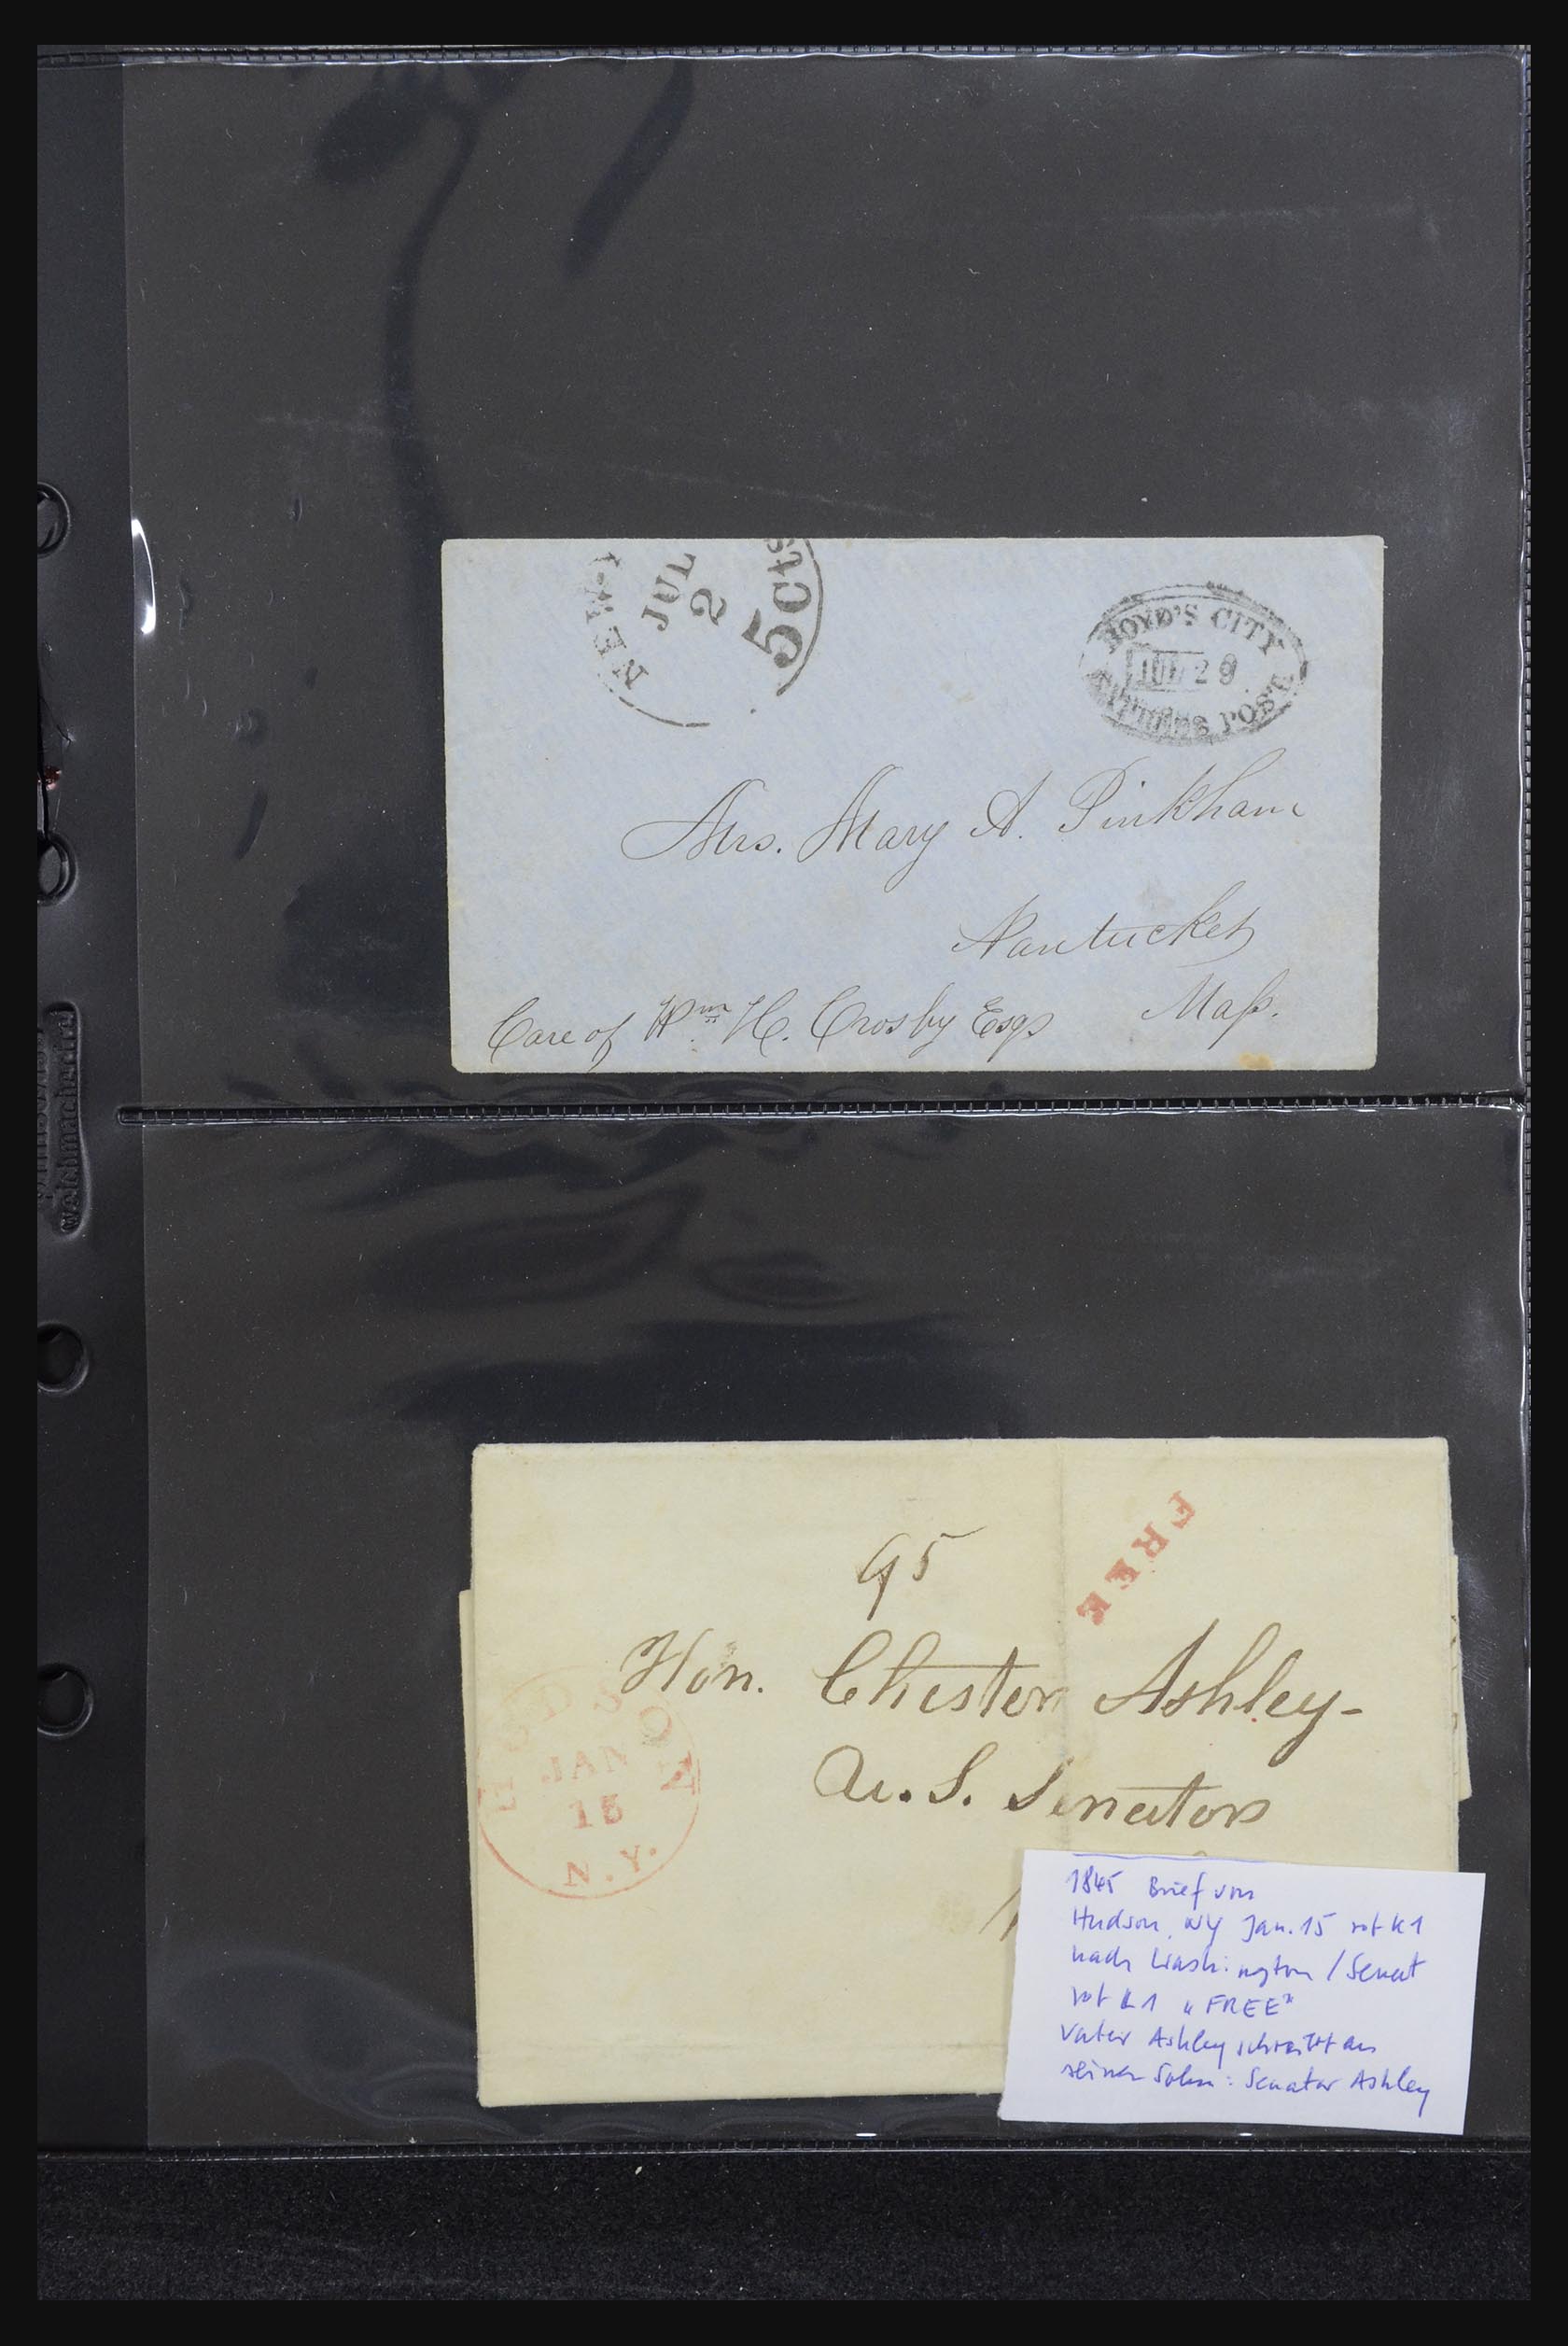 NEW-
JUL
2
5 cts
BOYD'S CITY
JUL 29
EXPRESS POST
Mrs. Mary A. Pinkham
Nantucket
Mass.
Care of Wm H. Crosby Esqr
weichmacherfrei
FREE
95
Hon. Chester Ashley-
U. S. Senator
HUDSON
JAN
15
N.Y.
1845 Brief von
Hudson, NY Jan. 15 rot K1
nach Washington / Senat
rot L1 „FREE"
Vater Ashley schreibt an
seinen Sohn: Senator Ashley